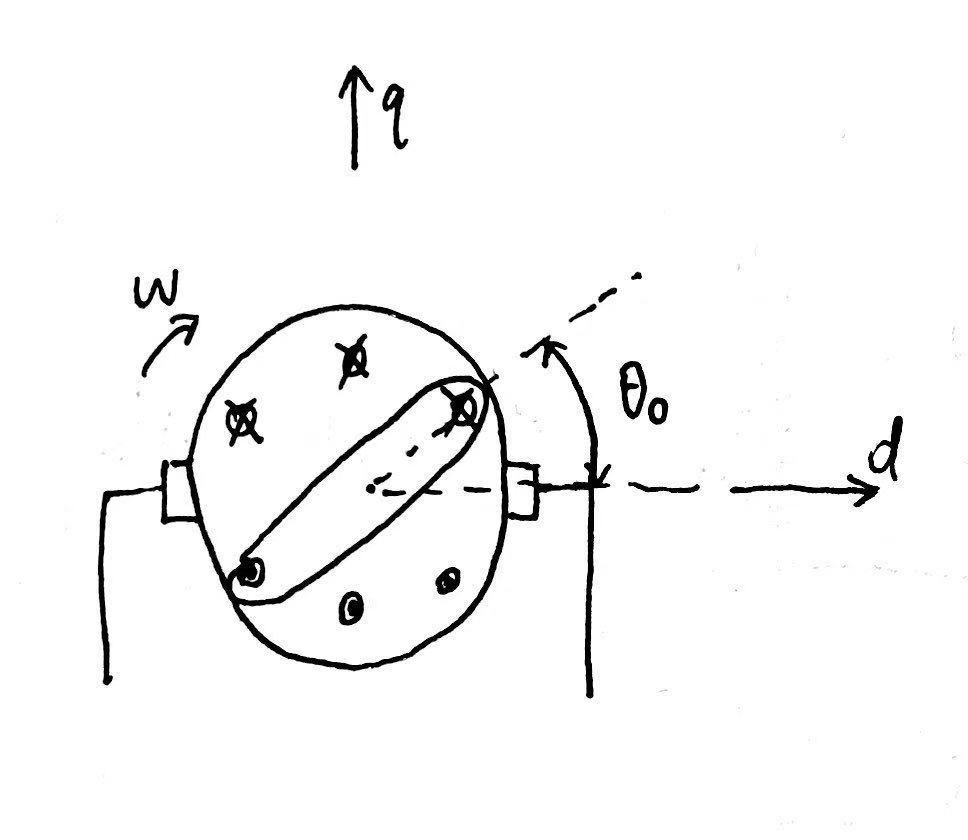 q
w
θ₀
d